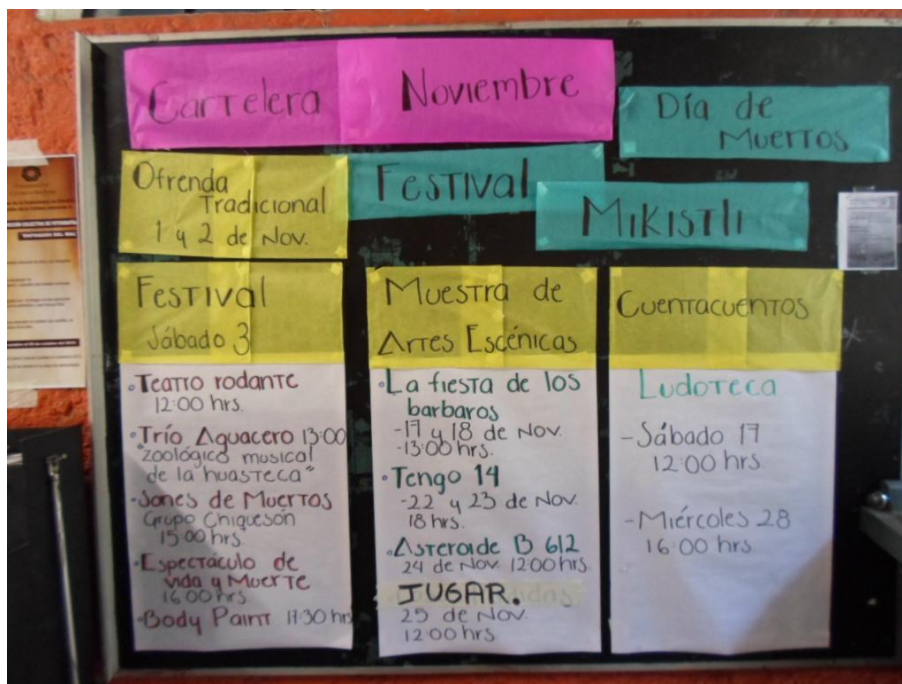 Cartelera Noviembre
Día de
Muertos
Ofrenda
Tradicional
1 y 2 de Nov.
Festival
Mikistli
Festival
Sábado 3
·Teatro rodante
12:00 hrs.
·Trío Aguacero 13:00
"zoológico musical
de la huasteca"
·Sones de Muertos
Grupo Chiqueson
15:00 hrs.
·Espectáculo de
vida y Muerte
16:00 hrs
·Body Paint 17:30 hrs
Muestra de
Artes Escénicas
·La fiesta de los
barbaros
-17 y 18 de Nov.
-13:00 hrs.
·Tengo 14
-22 y 23 de Nov.
18 hrs.
·Asteroide B 612
24 de Nov. 12:00 hrs.
JUGAR.
25 de Nov.
12:00 hrs
Cuentacuentos
Ludoteca
-Sábado 17
12:00 hrs.
-Miércoles 28
16:00 hrs